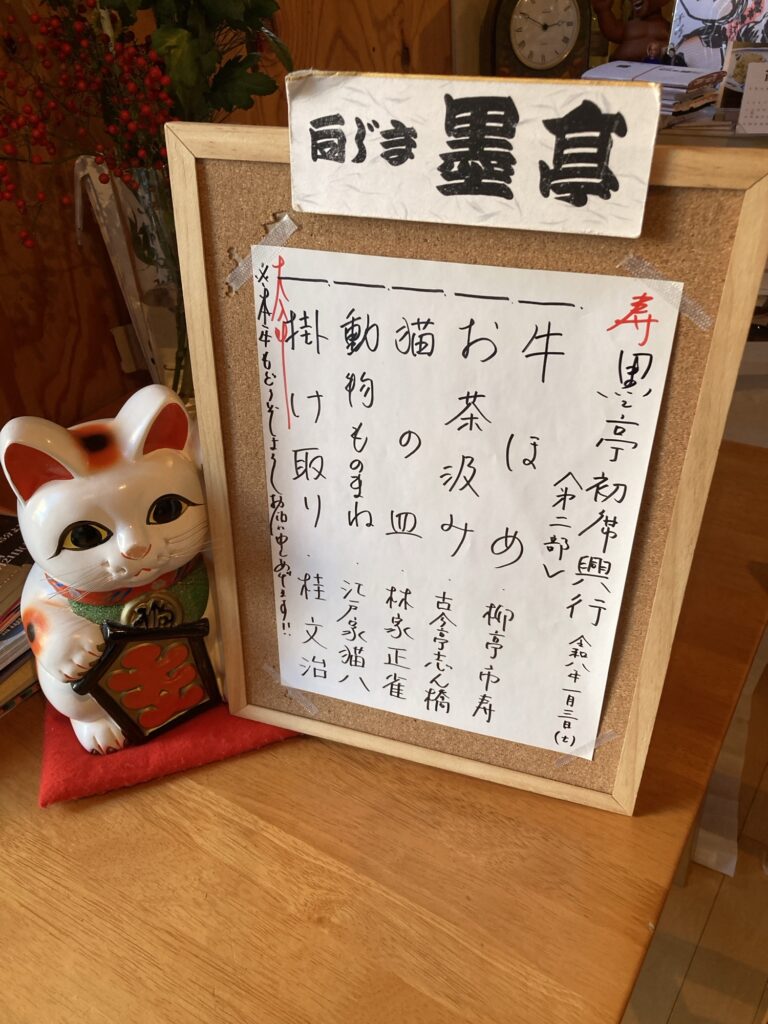 向じま 墨亭
寿 墨亭初席興行 令和八年一月三日(土)
〈第二部〉
一、牛ほめ・柳亭市寿
一、お茶汲み・古今亭志ん橋
一、猫の皿・林家正雀
一、動物ものまね・江戸家猫八
一、掛け取り・桂文治
※本年もどうぞよろしくお願い申しあげます!!